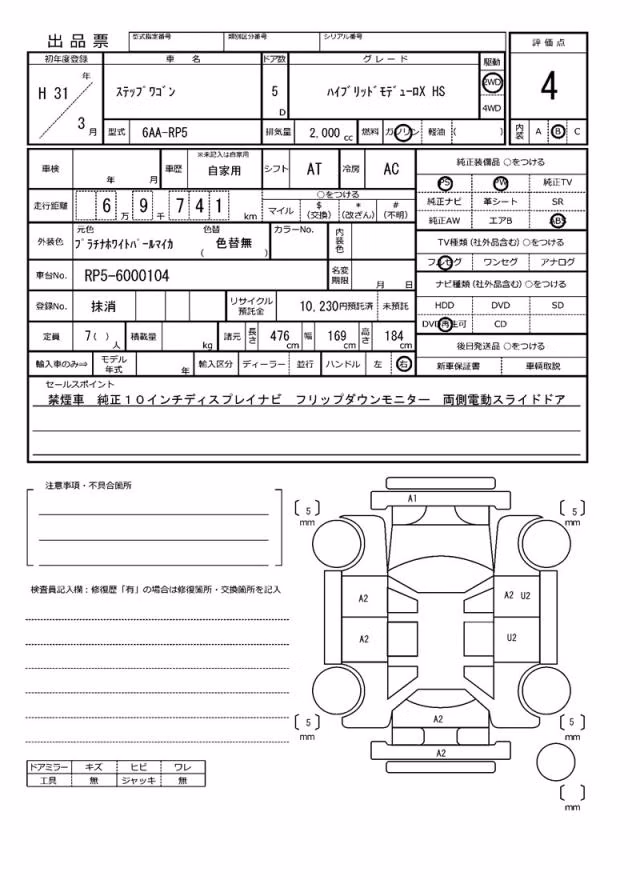 出品票
型式指定番号 類別区分番号 シリアル番号
評価点
4
内装 A B C
初年度登録 車 名 ドア数 グレード 駆動
H 31 年
3 月
ステップワゴン
5 D
ハイブリッドモデューロX HS
2WD
4WD
型式 6AA-RP5 排気量 2,000 cc 燃料 ガソリン 軽油 ( )
車検 年 月 車歴 ※未記入は自家用
自家用
シフト AT 冷房 AC
走行距離 6 万 9 千 7 4 1 km
○をつける
マイル $ (交換) * (改ざん) # (不明)
外装色 元色 プラチナホワイトパールマイカ
色替 ( 色替無 )
カラーNo. 内装色
車台No. RP5-6000104 名変期限 月 日
登録No. 抹消 リサイクル預託金 10,230円預託済 未預託
定員 7( ) 人 積載量 kg 諸元 長さ 476 cm 幅 169 cm 高さ 184 cm
輸入車のみ⇒ モデル年式 年 輸入区分 ディーラー 並行 ハンドル 左 右
純正装備品 ○をつける
PS PW 純正TV
純正ナビ 革シート SR
純正AW エアB ABS
TV種類 (社外品含む) ○をつける
フルセグ ワンセグ アナログ
ナビ種類 (社外品含む) ○をつける
HDD DVD SD
DVD再生可 CD
後日発送品 ○をつける
新車保証書 車輌取説
セールスポイント
禁煙車 純正10インチディスプレイナビ フリップダウンモニター 両側電動スライドドア
注意事項・不具合箇所
検査員記入欄：修復歴「有」の場合は修復箇所・交換箇所を記入
ドアミラー キズ ヒビ ワレ
工具 無 ジャッキ 無
A1
5
mm
5
mm
A2
A2 U2
A2
U2
A2
A2
5
mm
5
mm
mm